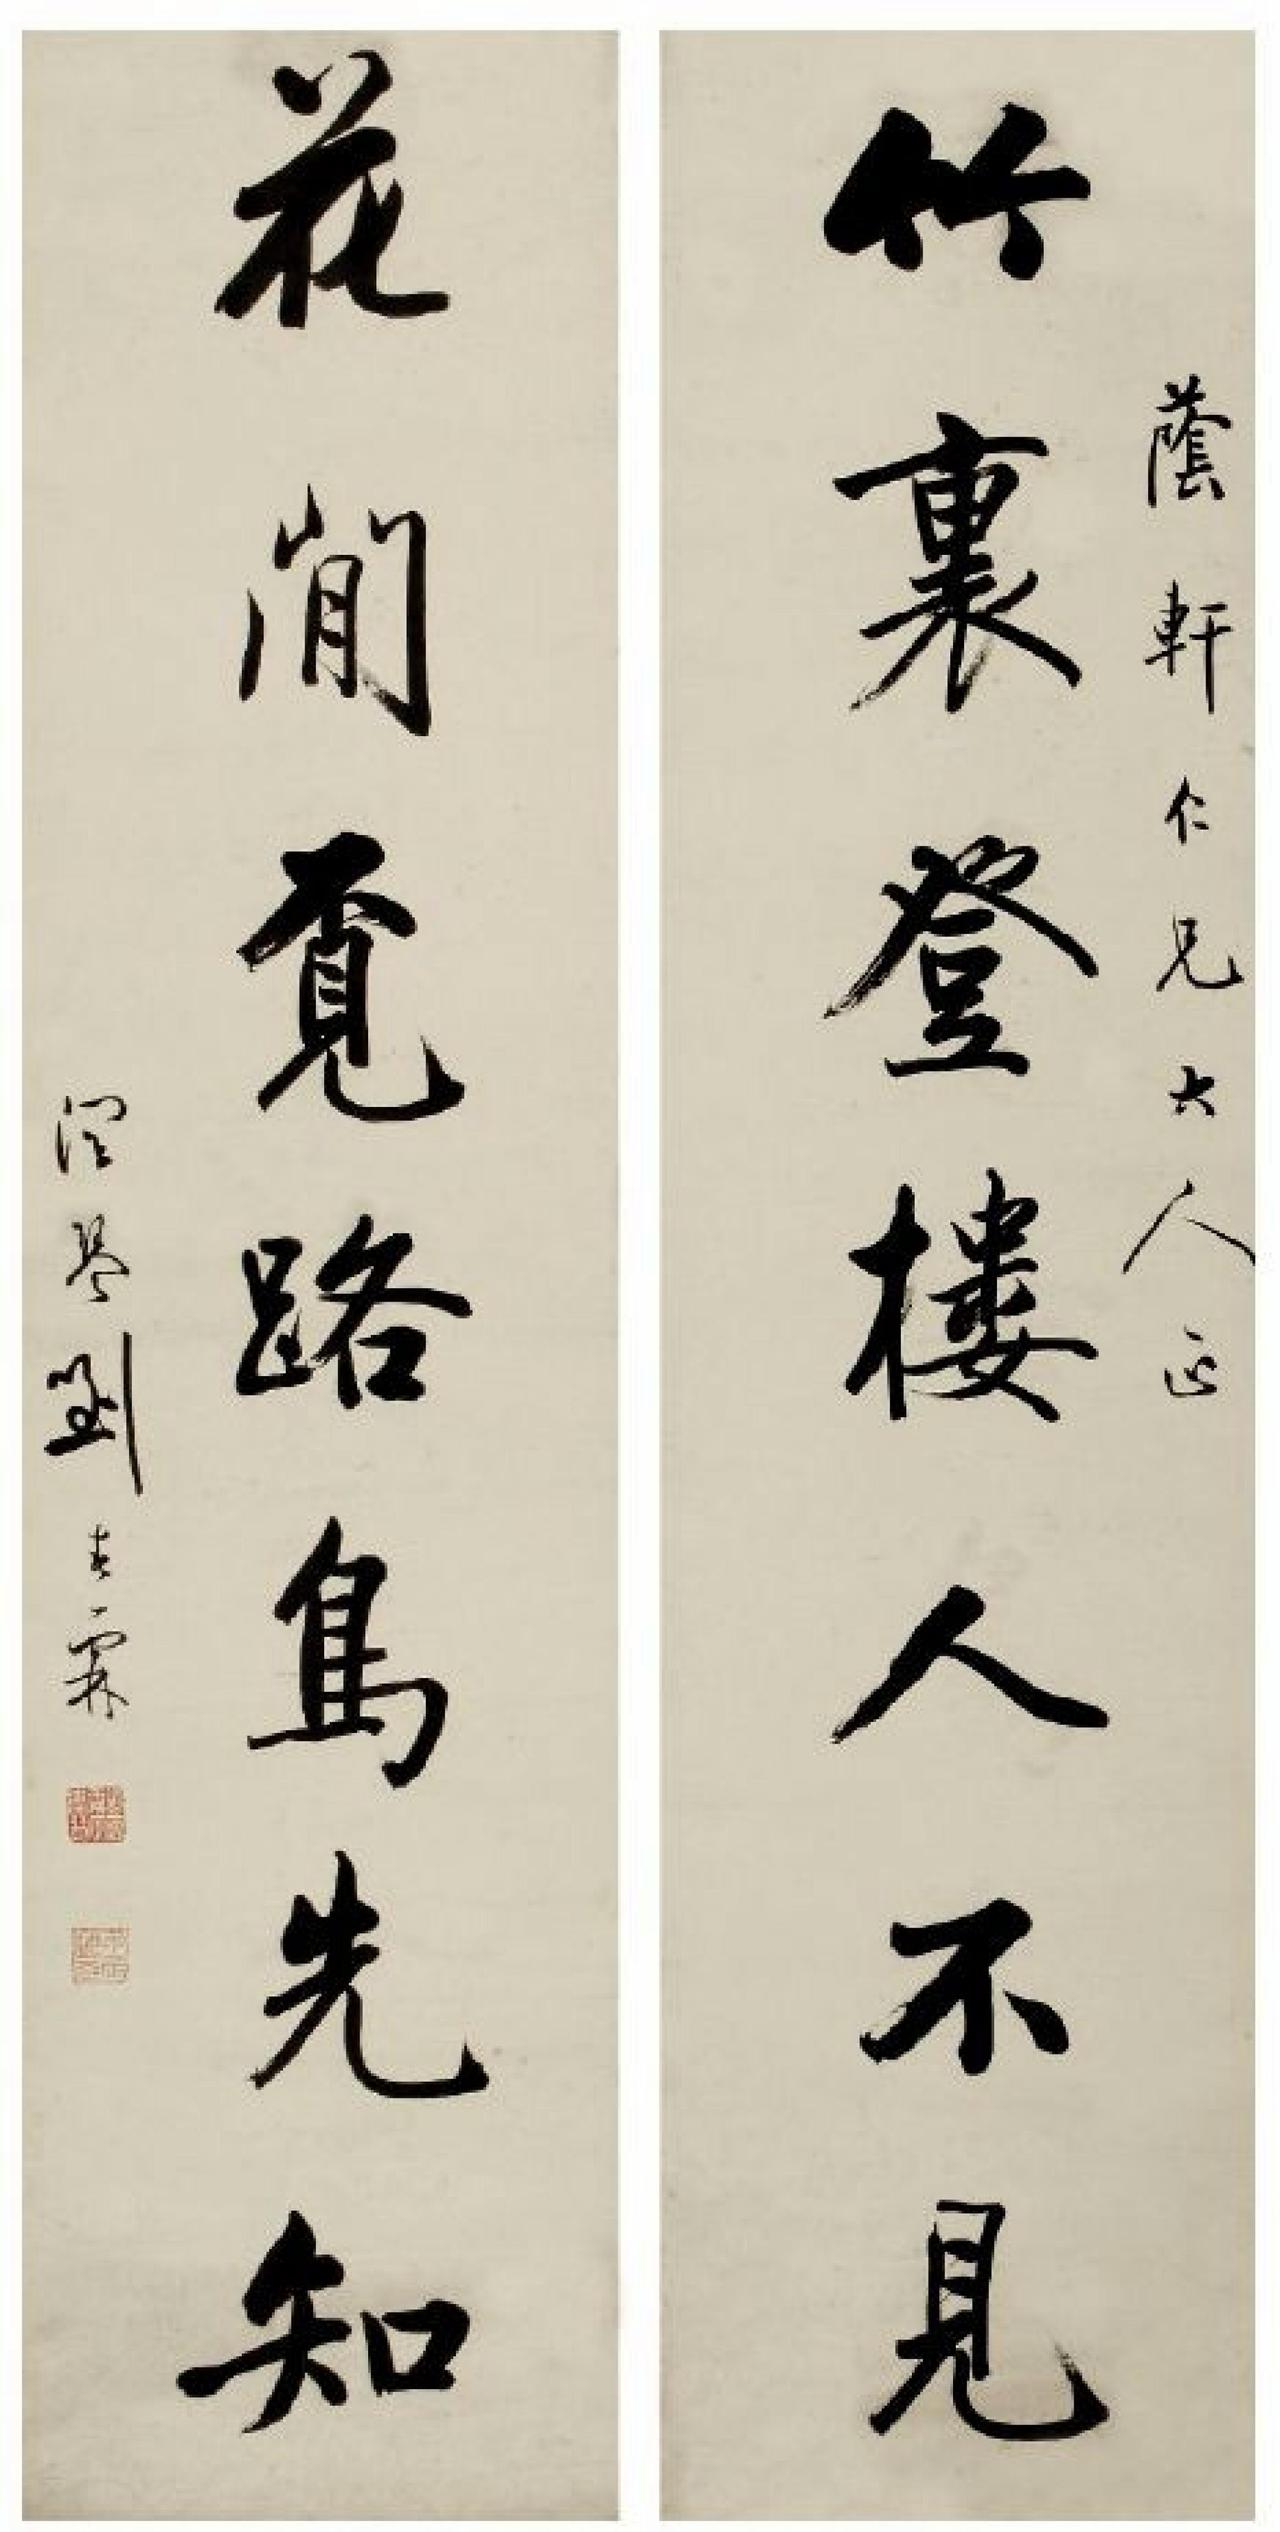 蔭軒仁兄大人正
竹裏登樓人不見
花間覓路鳥先知
潤琴劉春霖